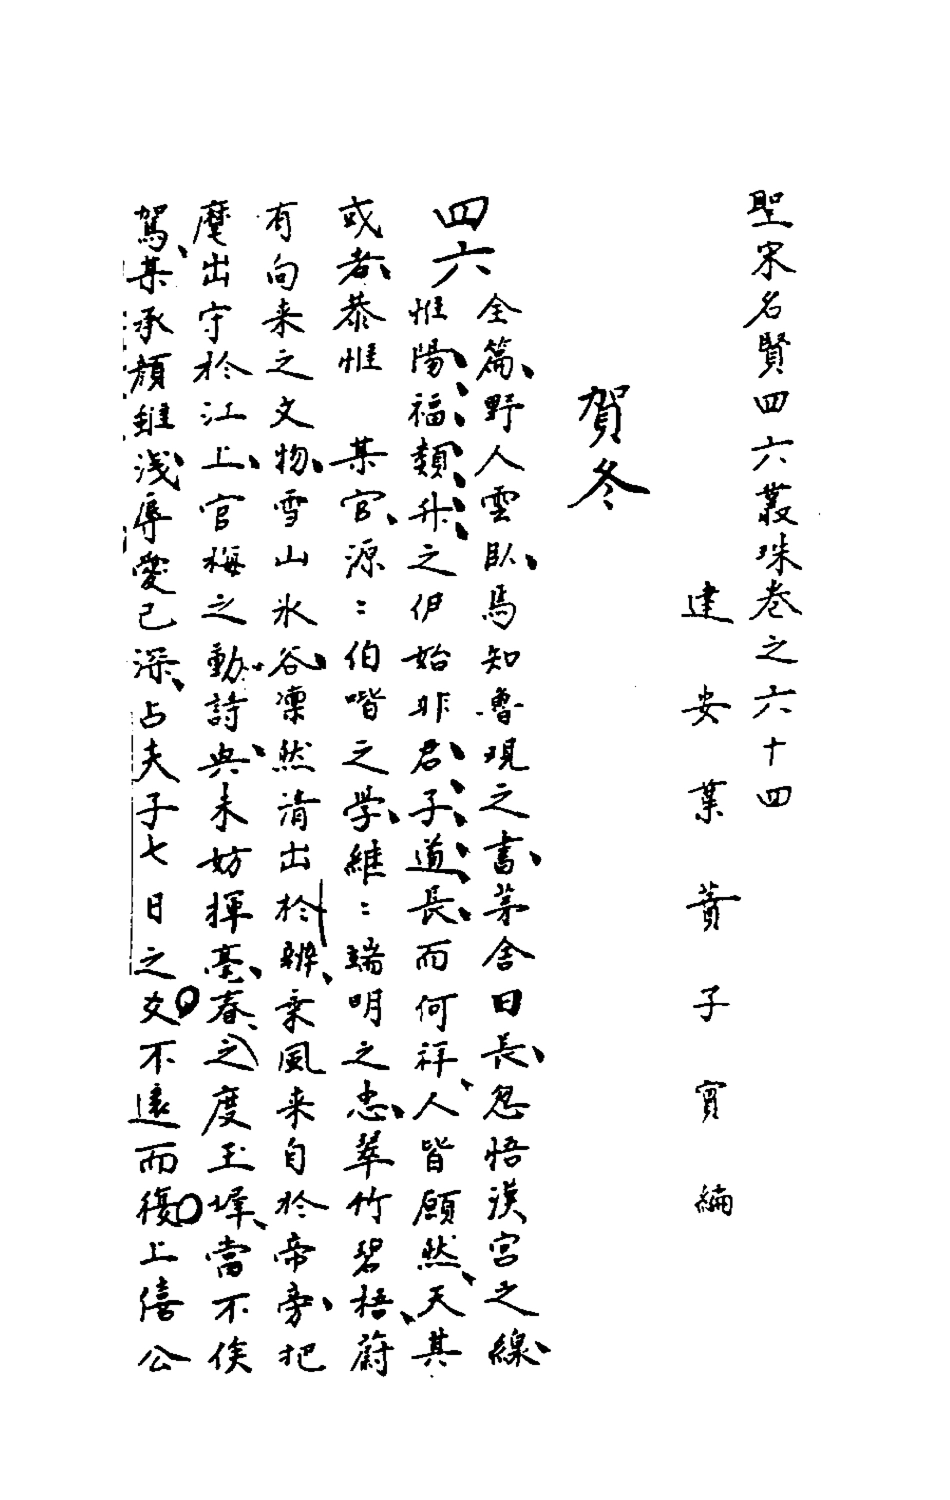 聖宋名賢四六叢珠卷之六十四
建安葉蕡子實編
賀冬
四六
全篇野人雲臥焉知魯現之書茅舍日長忽悟漢宮之線
惟陽福類升之伊始非君子道長而何祥人皆願然天其
或者恭惟 某官源〻伯喈之學維〻端明之忠翠竹碧梧蔚
有向来之文物雪山氷谷凜然清出於辨乗風来自於帝旁把
麾出守於江上官梅之動詩興未妨揮毫春之度玉墀當不俟
駕某承顔雖浅辱愛已深占夫子七日之爻不遠而復上僖公